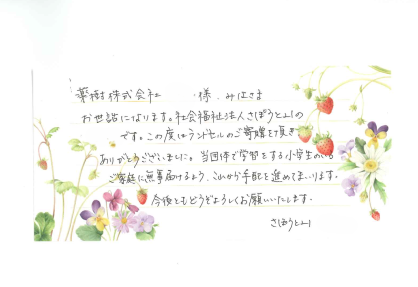 薬樹株式会社 様、みなさま
お世話になります。社会福祉法人さぽうと21
です。この度はランドセルのご寄贈を頂き
ありがとうございました。当団体で学習をする小学生のいる
ご家庭に無事届けるよう、これから手配を進めてまいります。
今後ともどうぞよろしくお願いいたします。
さぽうと21